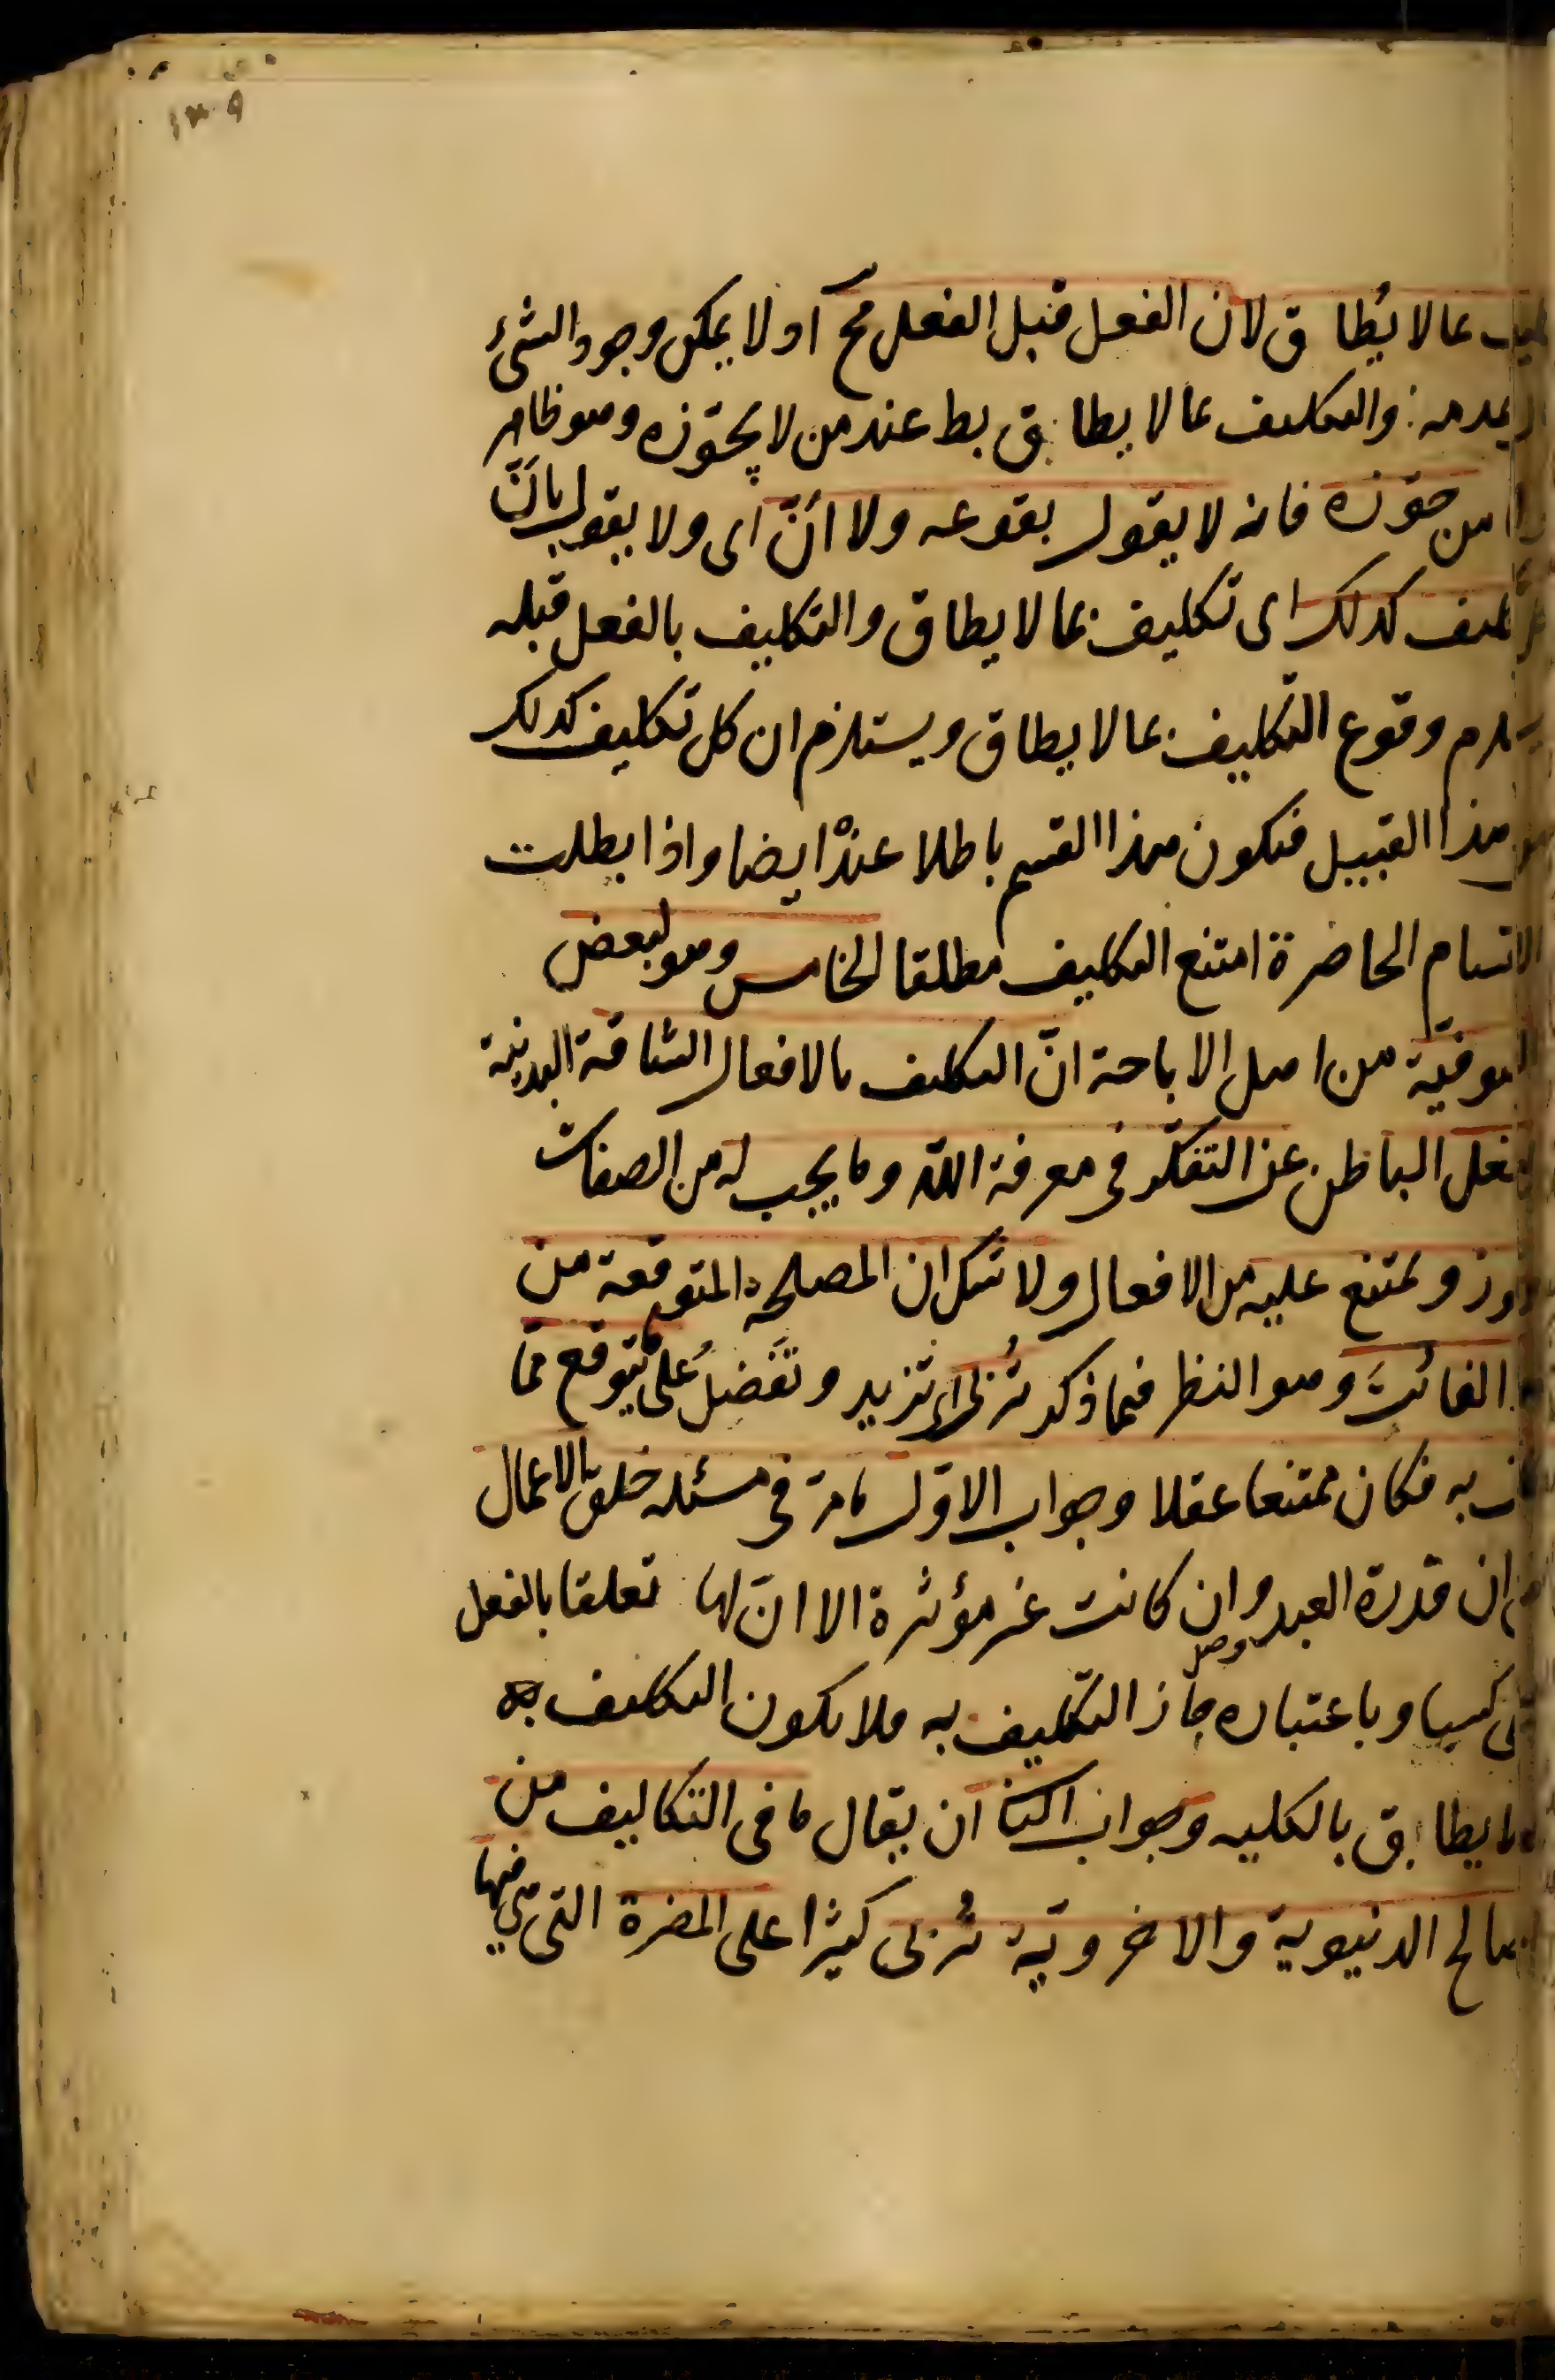 ١٣٠٩
بما لا يُطاق لان الفعل قبل الفعل مح اذ لا يمكن وجود الشئ
عدمه والتكليف بما لا يطاق بط عند من لا يجوّزه وهو ظاهر
من جوّزه فانه لا يقول بوقوعه ولا انّ اى ولا يقول بانّ
تكليف كذلك اى تكليف بما لا يطاق والتكليف بالفعل قبله
وقوع التكليف بما لا يطاق ويستلزم ان كل تكليف كذلك
هذا القبيل فيكون هذا القسم باطلا عنده ايضا واذا بطلت
الاقسام الحاضرة امتنع التكليف مطلقا الخامس وهو لبعض
الصوفيّة من اهل الاباحة انّ التكليف بالافعال الشاقة البدنية
الباطن عن التفكّر فى معرفة اللّه وما يجب له من الصفات
ويمتنع عليه من الافعال ولا شك ان المصلحة المتوقعة من
الفائت وهو النظر فيما ذكر تُربى اى تزيد وتَفضلُ على ما يتوقع ممّا
به فكان ممتنعا عقلا وجواب الاوّل ما مرّ فى مسئله خلق الاعمال
ان قدرة العبد وان كانت غير مؤثرة الا انّ لها تعلقا بالفعل
كسبا وباعتباره جاز التكليف به فلا يكون التكليف به
يطاق بالكليه وجواب الثا ان يقال ما فى التكاليف من
المصالح الدنيوية والاخروّية تُربى كثيرا على المضرة التى هى فيها